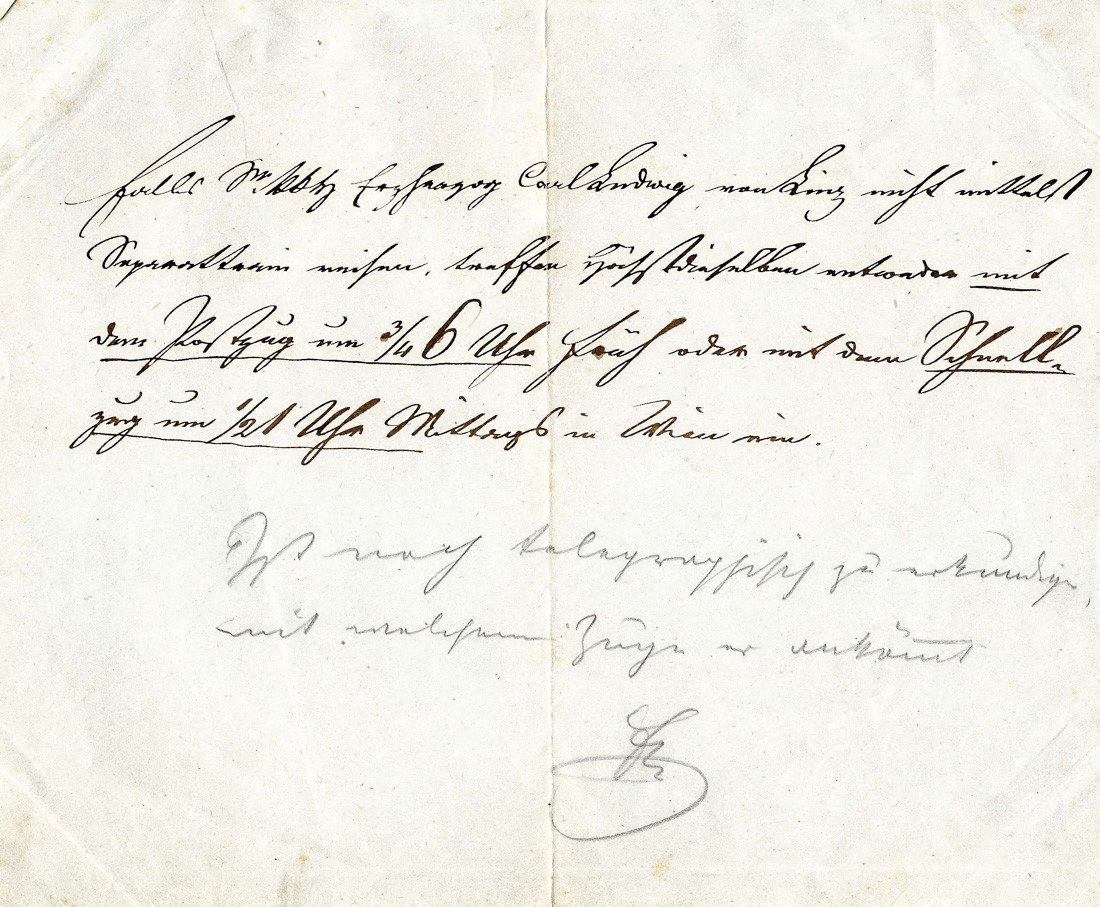 Falls Se. k.k. Hz Erzherzog Carl Ludwig von Linz nicht mittelst
Separattrain reisen, treffen Höchstdieselben entweder mit
dem Postzug um 3/4 6 Uhr früh oder mit dem Schnell-
zug um 1/2 1 Uhr Mittags in Wien ein.
Ist noch telegraphisch zu erkundigen,
mit welchem Zuge er ankömmt